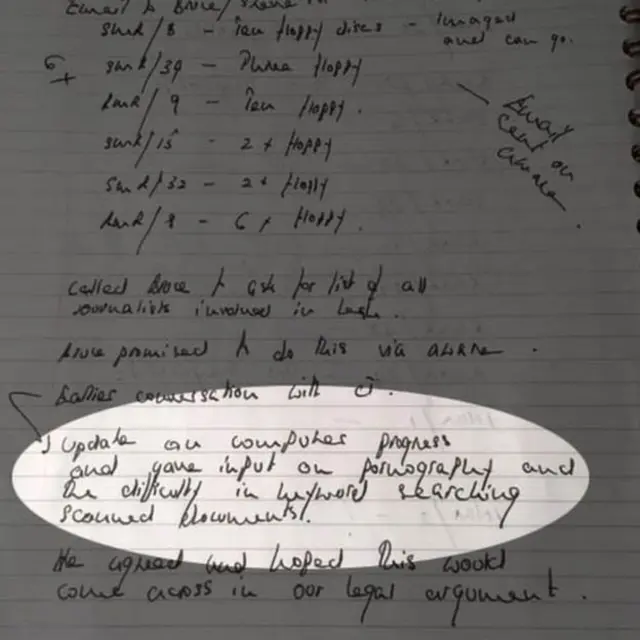 Email to
SMR/8 - Ten floppy discs - Imaged
and can go.
SMR/39 - Three floppy
RMR/9 - Ten floppy.
SMR/15 - 2 x floppy
SMR/32 - 2 x floppy
RMR/8 - 6 x floppy.
Email
sent on
Called Bruce to ask for list of all
journalists involved in leak.
Bruce promised to do this via
Earlier conversation with J.
Update on computer progress
and gave input on pornography and
the difficulty in keyword searching
scanned documents.
He agreed and hoped this would
come across in our legal argument.